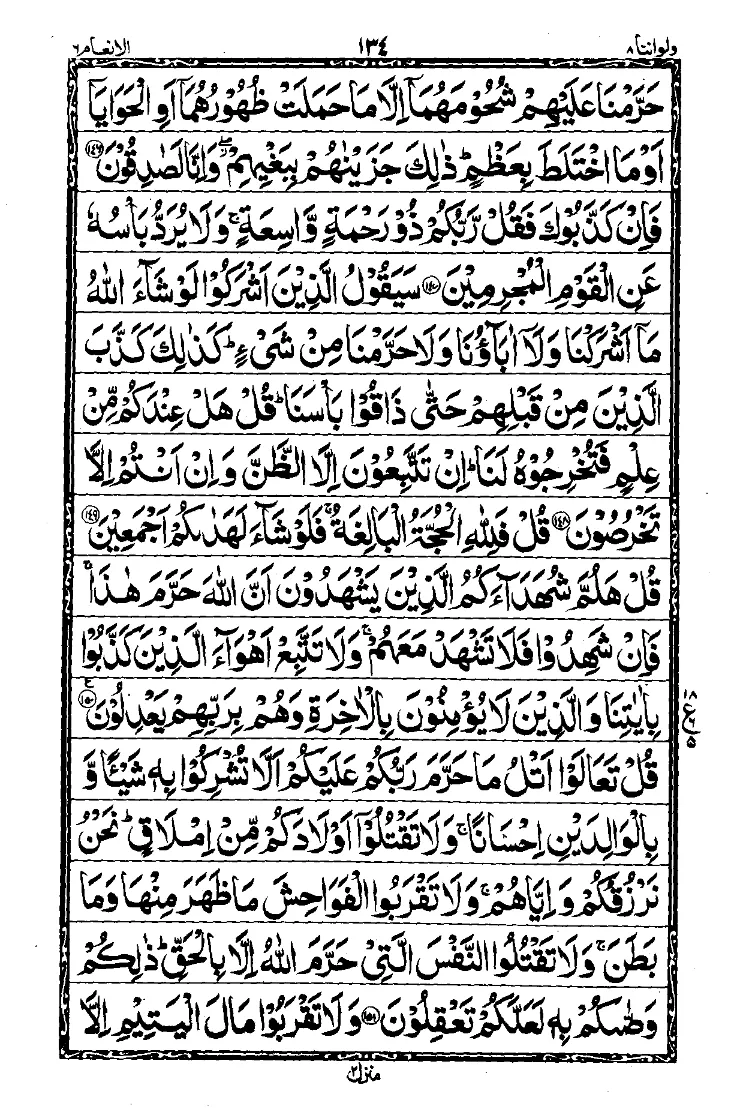 ولواننا ٨ ١٣٤ الانعام ٦
حَرَّمْنَا عَلَيْهِمْ شُحُوْمَهُمَاۤ اِلَّا مَا حَمَلَتْ ظُهُوْرُهُمَاۤ اَوِ الْحَوَايَاۤ
اَوْ مَا اخْتَلَطَ بِعَظْمٍ ؕ ذٰلِكَ جَزَيْنٰهُمْ بِبَغْيِهِمْ ۖ وَاِنَّا لَصٰدِقُوْنَ ﴿۱۴۶﴾
فَاِنْ كَذَّبُوْكَ فَقُلْ رَّبُّكُمْ ذُوْ رَحْمَةٍ وَّاسِعَةٍ ۚ وَلَا يُرَدُّ بَاْسُهٗ
عَنِ الْقَوْمِ الْمُجْرِمِيْنَ ﴿۱۴۷﴾ سَيَقُوْلُ الَّذِيْنَ اَشْرَكُوْا لَوْ شَآءَ اللّٰهُ
مَاۤ اَشْرَكْنَا وَلَاۤ اٰبَآؤُنَا وَلَا حَرَّمْنَا مِنْ شَیْءٍ ؕ كَذٰلِكَ كَذَّبَ
الَّذِيْنَ مِنْ قَبْلِهِمْ حَتّٰى ذَاقُوْا بَاْسَنَا ؕ قُلْ هَلْ عِنْدَكُمْ مِّنْ
عِلْمٍ فَتُخْرِجُوْهُ لَنَا ؕ اِنْ تَتَّبِعُوْنَ اِلَّا الظَّنَّ وَاِنْ اَنْتُمْ اِلَّا
تَخْرُصُوْنَ ﴿۱۴۸﴾ قُلْ فَلِلّٰهِ الْحُجَّةُ الْبَالِغَةُ ۚ فَلَوْ شَآءَ لَهَدٰىكُمْ اَجْمَعِيْنَ ﴿۱۴۹﴾
قُلْ هَلُمَّ شُهَدَآءَكُمُ الَّذِيْنَ يَشْهَدُوْنَ اَنَّ اللّٰهَ حَرَّمَ هٰذَا ۚ
فَاِنْ شَهِدُوْا فَلَا تَشْهَدْ مَعَهُمْ ۚ وَلَا تَتَّبِعْ اَهْوَآءَ الَّذِيْنَ كَذَّبُوْا
بِاٰيٰتِنَا وَالَّذِيْنَ لَا يُؤْمِنُوْنَ بِالْاٰخِرَةِ وَهُمْ بِرَبِّهِمْ يَعْدِلُوْنَ ﴿۱۵۰﴾
قُلْ تَعَالَوْا اَتْلُ مَا حَرَّمَ رَبُّكُمْ عَلَيْكُمْ اَلَّا تُشْرِكُوْا بِهٖ شَيْـًٔا وَّ
بِالْوَالِدَيْنِ اِحْسَانًا ۚ وَلَا تَقْتُلُوْۤا اَوْلَادَكُمْ مِّنْ اِمْلَاقٍ ؕ نَحْنُ
نَرْزُقُكُمْ وَاِيَّاهُمْ ۚ وَلَا تَقْرَبُوا الْفَوَاحِشَ مَا ظَهَرَ مِنْهَا وَمَا
بَطَنَ ۚ وَلَا تَقْتُلُوا النَّفْسَ الَّتِيْ حَرَّمَ اللّٰهُ اِلَّا بِالْحَقِّ ؕ ذٰلِكُمْ
وَصّٰىكُمْ بِهٖ لَعَلَّكُمْ تَعْقِلُوْنَ ﴿۱۵۱﴾ وَلَا تَقْرَبُوْا مَالَ الْيَتِيْمِ اِلَّا
منزل ٢